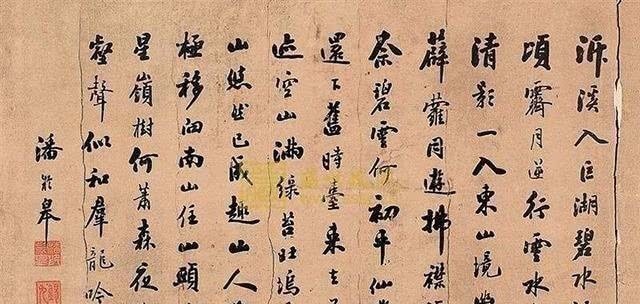 泝溪入巨湖碧水
頃霽月逆行雲水
清影一入東山境
薜蘿同遊拂襟
茶碧雲何初平仙
還下舊時臺東
迹空山滿綠苔旺塢
山悠然已成趣山人
極移向南山住山頭
星嶺樹何蕭森夜
壑聲似和羣龍吟
潘齡皋